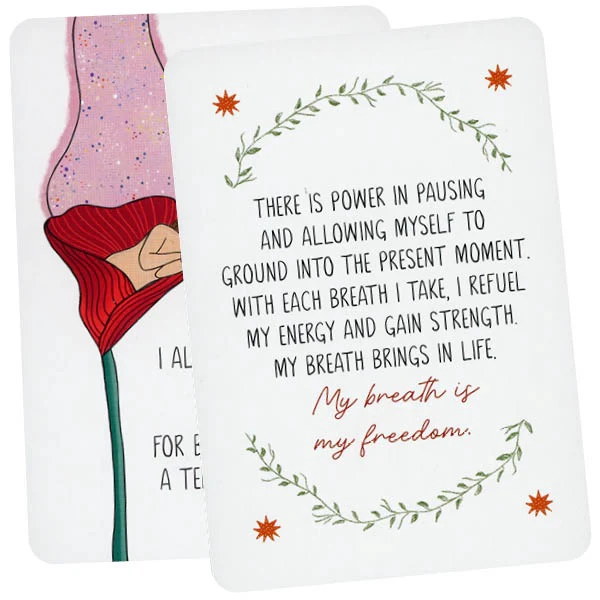 I
FOR
A
THERE IS POWER IN PAUSING
AND ALLOWING MYSELF TO
GROUND INTO THE PRESENT MOMENT.
WITH EACH BREATH I TAKE, I REFUEL
MY ENERGY AND GAIN STRENGTH.
MY BREATH BRINGS IN LIFE.
My breath is
my freedom.